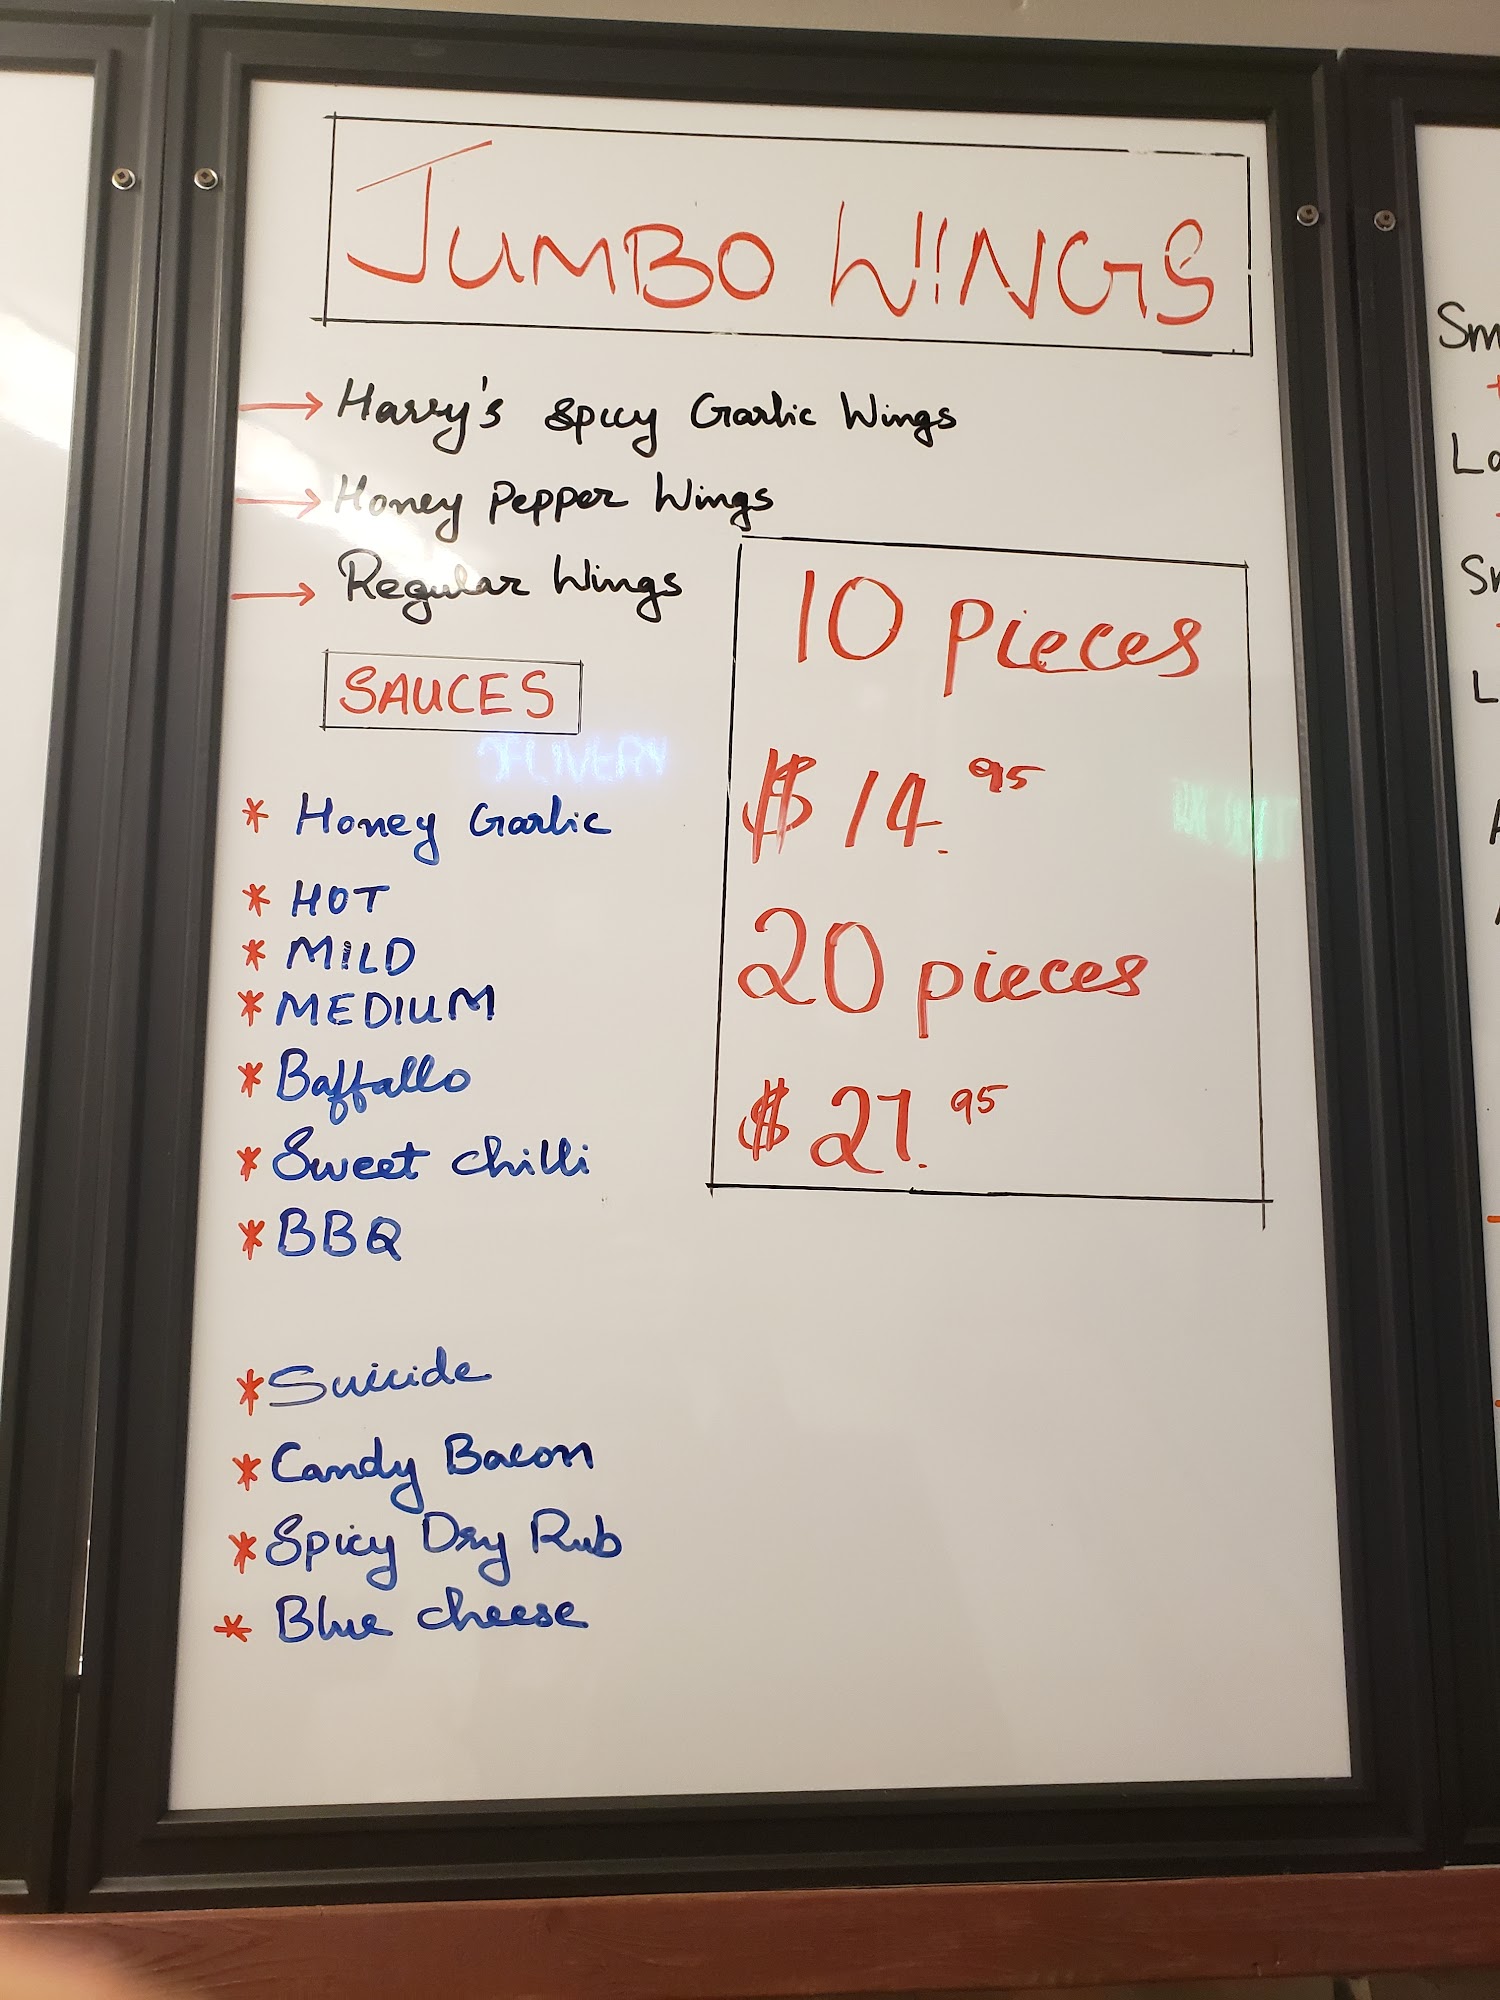 JUMBO WINGS
→ Harry's Spicy Garlic Wings
→ Honey Pepper Wings
→ Regular Wings
SAUCES
DELIVERY
* Honey Garlic
* HOT
* MILD
* MEDIUM
* Baffallo
* Sweet chilli
* BBQ
* Suicide
* Candy Bacon
* Spicy Dry Rub
* Blue cheese
10 pieces
$14.95
20 pieces
$27.95
Sm
L